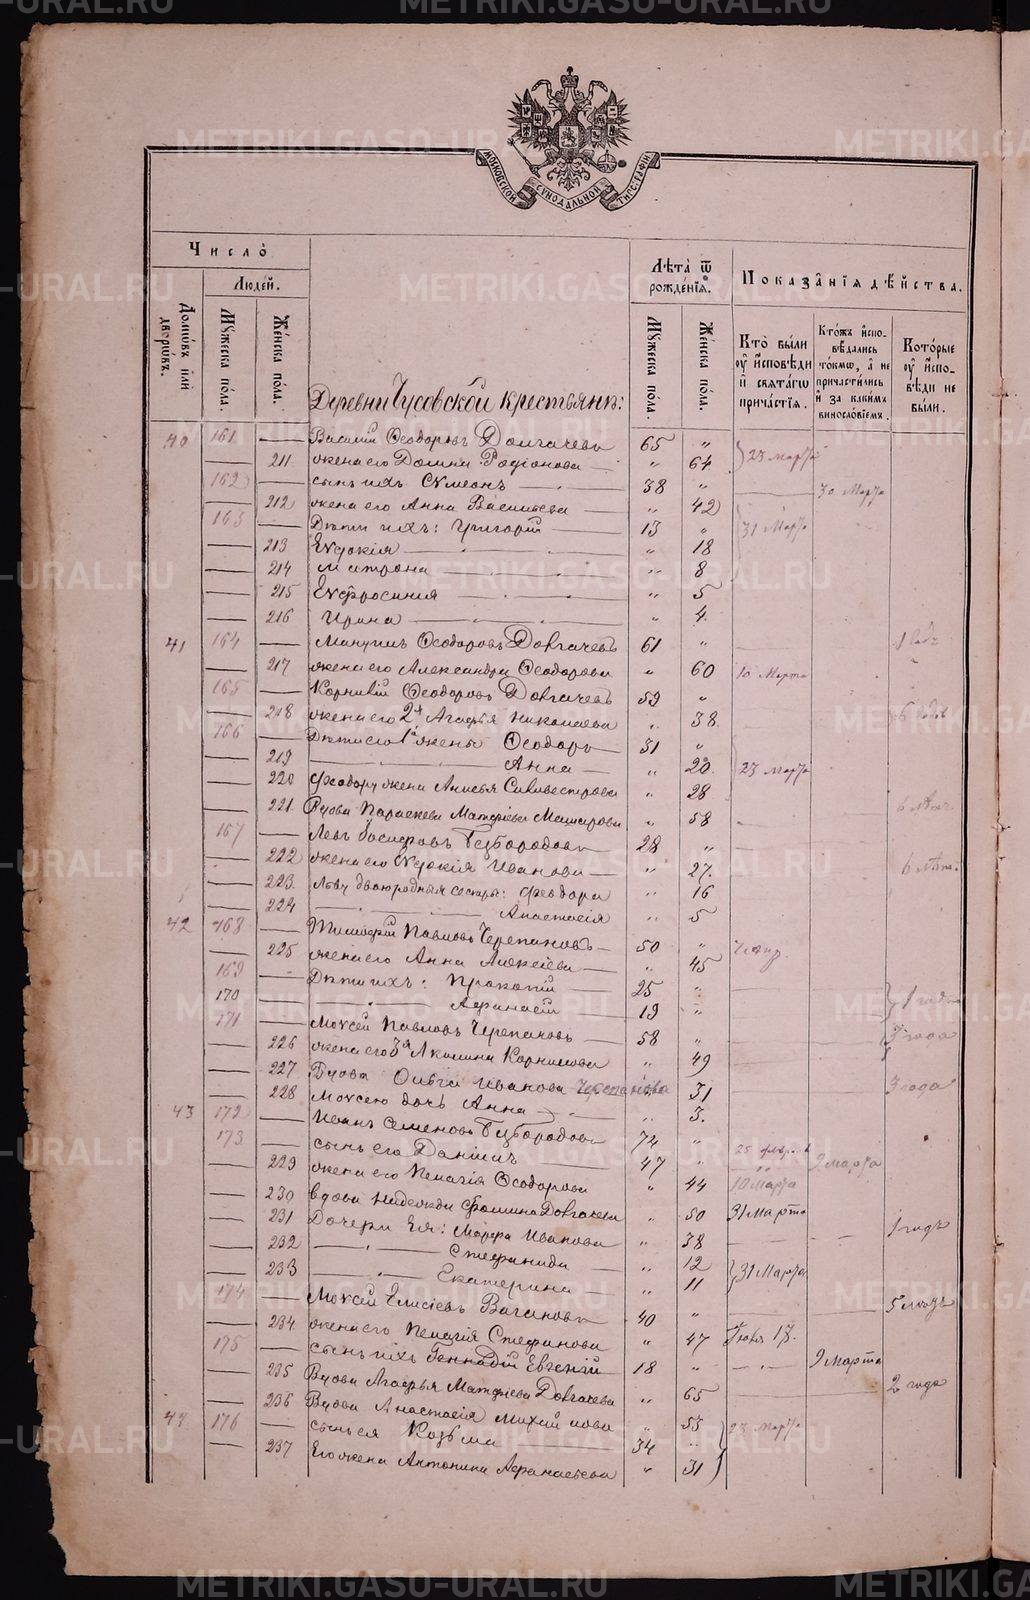 METRIKI.GASO-URAL.RU
МОСКОВСКОЙ СУНОДАЛЬНОЙ ТИПОГРАФІИ
Число̀
Людей.
Домѡвъ или дворѡвъ.
Мужеска пола.
Же́нска пола.
Лѣта̀ ѿ рожде́нїѧ.
Мужеска пола.
Же́нска пола.
Показа̑нїѧ дѣ́йства.
Кто̀ были у исповѣди и свѧта́гѡ прича́стїѧ.
Кто́жъ испо-вѣдались то́кмѡ, а не причасти́лись и за каки́мъ винословїемъ.
Кото́рые у испо-вѣди не были.
Деревни Чусовской крестьянъ:
40 161 — Василій Ѳеодоровъ Долгачевъ 65 „
— 211 жена его Домна Родіонова — „ 64 } 23 марта
162 — сынъ ихъ Сумеонъ — 38 „ — 30 Марта
— 212 жена его Анна Васильева — „ 42
163 — Дѣти ихъ: Григорій — 13 „ } 31 Марта
— 213 Евдокія — „ 18
— 214 Матрона — „ 8
— 215 Евфросинія — „ 5
— 216 Ирина — „ 4.
41 164 — Мануилъ Ѳеодоровъ Долгачевъ 61 „ — 1 годъ
— 217 жена его Александра Ѳеодорова „ 60 10 Марта
165 — Корнилій Ѳеодоровъ Долгачевъ 59 „ — 6 годовъ
— 218 жена его 2я Агафья Николаева „ 38.
166 — Дѣти его 1й жены Ѳеодоръ — 31 „
— 219 — „ — Анна — „ 20. } 23 марта
— 220 Ѳеодору жена Анисья Сильвестрова „ 28
— 221. Вдова Параскева Матфіева Машарова „ 58 — 6 лѣтъ
167 — Левъ Іосифовъ Губородовъ 28 „
— 222 жена его Евдокія Иванова — „ 27. — 6 лѣтъ.
— 223. Льву двоюродныя сестры: Ѳеодора „ 16
— 224 — Анастасія „ 5
42 168 — Тимофей Павловъ Черепановъ — 50 „
— 225 жена его Анна Алексіева — „ 45
169 — Дѣти ихъ: Прокопій — 25 „ —
170 — „ Афанасій 19 „ — } 1 годъ
171 — Моисей Павловъ Черепановъ — 58 „ — 3 года
— 226 жена его 3я Акилина Корнилова „ 49 —
— 227 Вдова Ольга Иванова Черепанова „ 31 — 3 года
— 228 Моисею дочь Анна — „ 3.
43 172 — Иванъ Семеновъ Губородовъ 74 „ 25 февраля
173 — сынъ его Даніилъ — 47 „ — 9 марта
— 229 жена его Пелагія Ѳеодорова „ 44 10 Марта
— 230 вдова Надежда Фомина Долгачева „ 50 31 Марта
— 231 Дочери Ея: Марфа Иванова „ 38 — — 1 годъ
— 232 — „ — Стефанида — „ 12
— 233 — „ — Екатерина — „ 11 } 31 Марта
174 — Моисей Елисіевъ Вагановъ 40 „ — 5 годъ
— 234 жена его Пелагія Стефанова „ 47
175 — сынъ ихъ Геннадій Евгеній 18 „ — 9 Марта
— 235 Вдова Агафья Матфіева Долгачева „ 65 — 2 года
— 236 Вдова Анастасія Михайлова „ 53
44 176 — сынъ ея Козьма 34 „ 23 Марта
— 237 Его жена Антонина Афанасьева „ 31 }